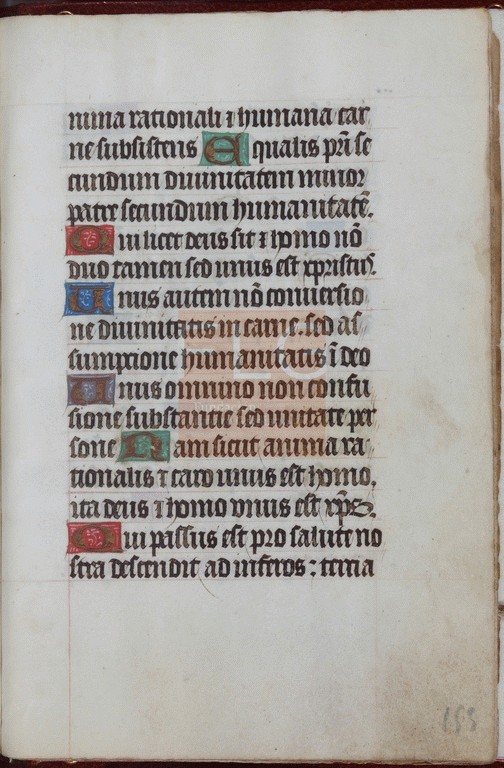 nima rationali ⁊ humana car
ne subsistens Equalis pri̅ se
cundum diuinitatem minor
patre secundum humanitate̅.
Qui licet deus sit ⁊ homo no̅
duo tamen sed unus est xpristus.
Unus autem no̅ conuersio
ne diuinitatis in carne. sed as
sumptione humanitatis i̅ deo
Unus omnino non confu
sione substantie sed unitate per
sone Nam sicut anima ra
tionalis ⁊ caro unus est homo.
ita deus ⁊ homo vnus est xp̅s.
Qui passus est pro salute no
stra descendit ad inferos : tercia
153